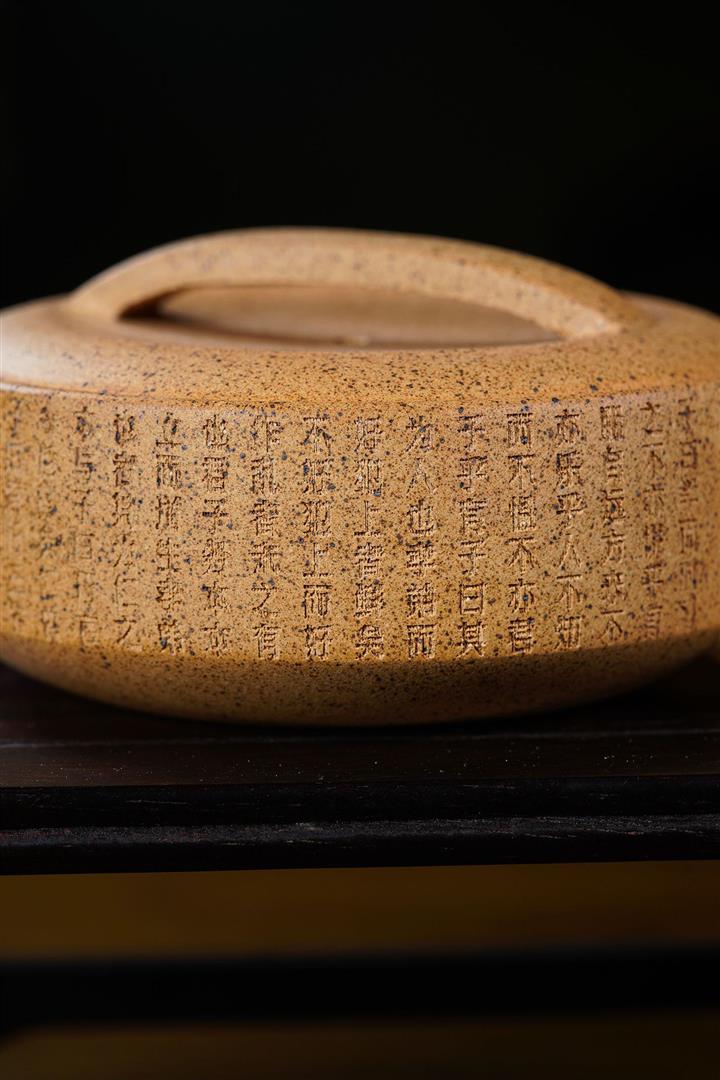 子曰学而时习
之不亦说乎有
朋自远方来不
亦乐乎人不知
而不愠不亦君
子乎有子曰其
为人也孝弟而
好犯上者鲜矣
不好犯上而好
作乱者未之有
也君子务本本
立而道生孝弟
也者其为仁之
本与子曰巧言